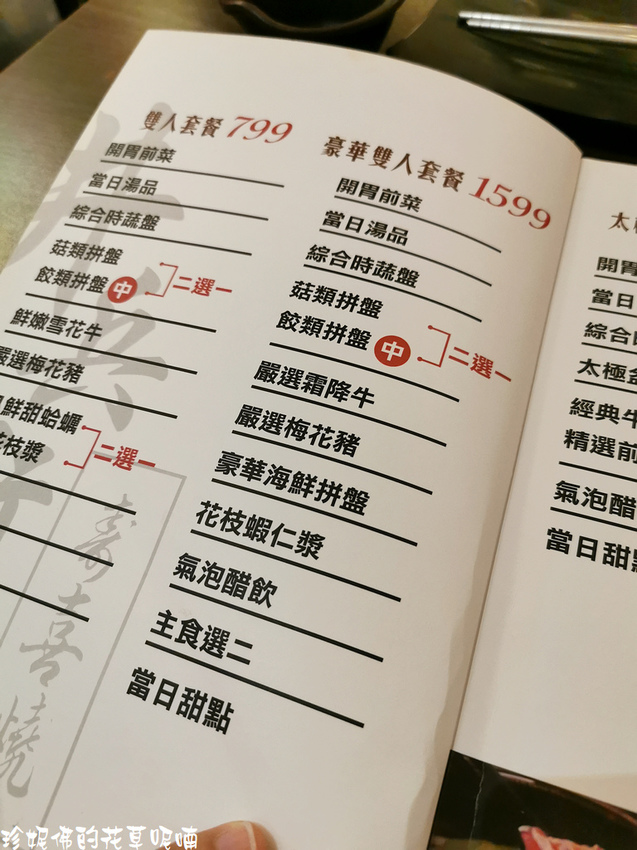 雙人套餐 799
開胃前菜
當日湯品
綜合時蔬盤
菇類拼盤
餃類拼盤 中 二選一
鮮嫩雪花牛
嚴選梅花豬
鮮甜蛤蠣
花枝漿 二選一
豪華雙人套餐 1599
開胃前菜
當日湯品
綜合時蔬盤
菇類拼盤
餃類拼盤 中 二選一
嚴選霜降牛
嚴選梅花豬
豪華海鮮拼盤
花枝蝦仁漿
氣泡醋飲
主食選二
當日甜點
太
開胃
當日
綜合時
太極金
經典牛
精選前
氣泡醋
當日甜點
壽喜燒
珍妮佛的花草呢喃